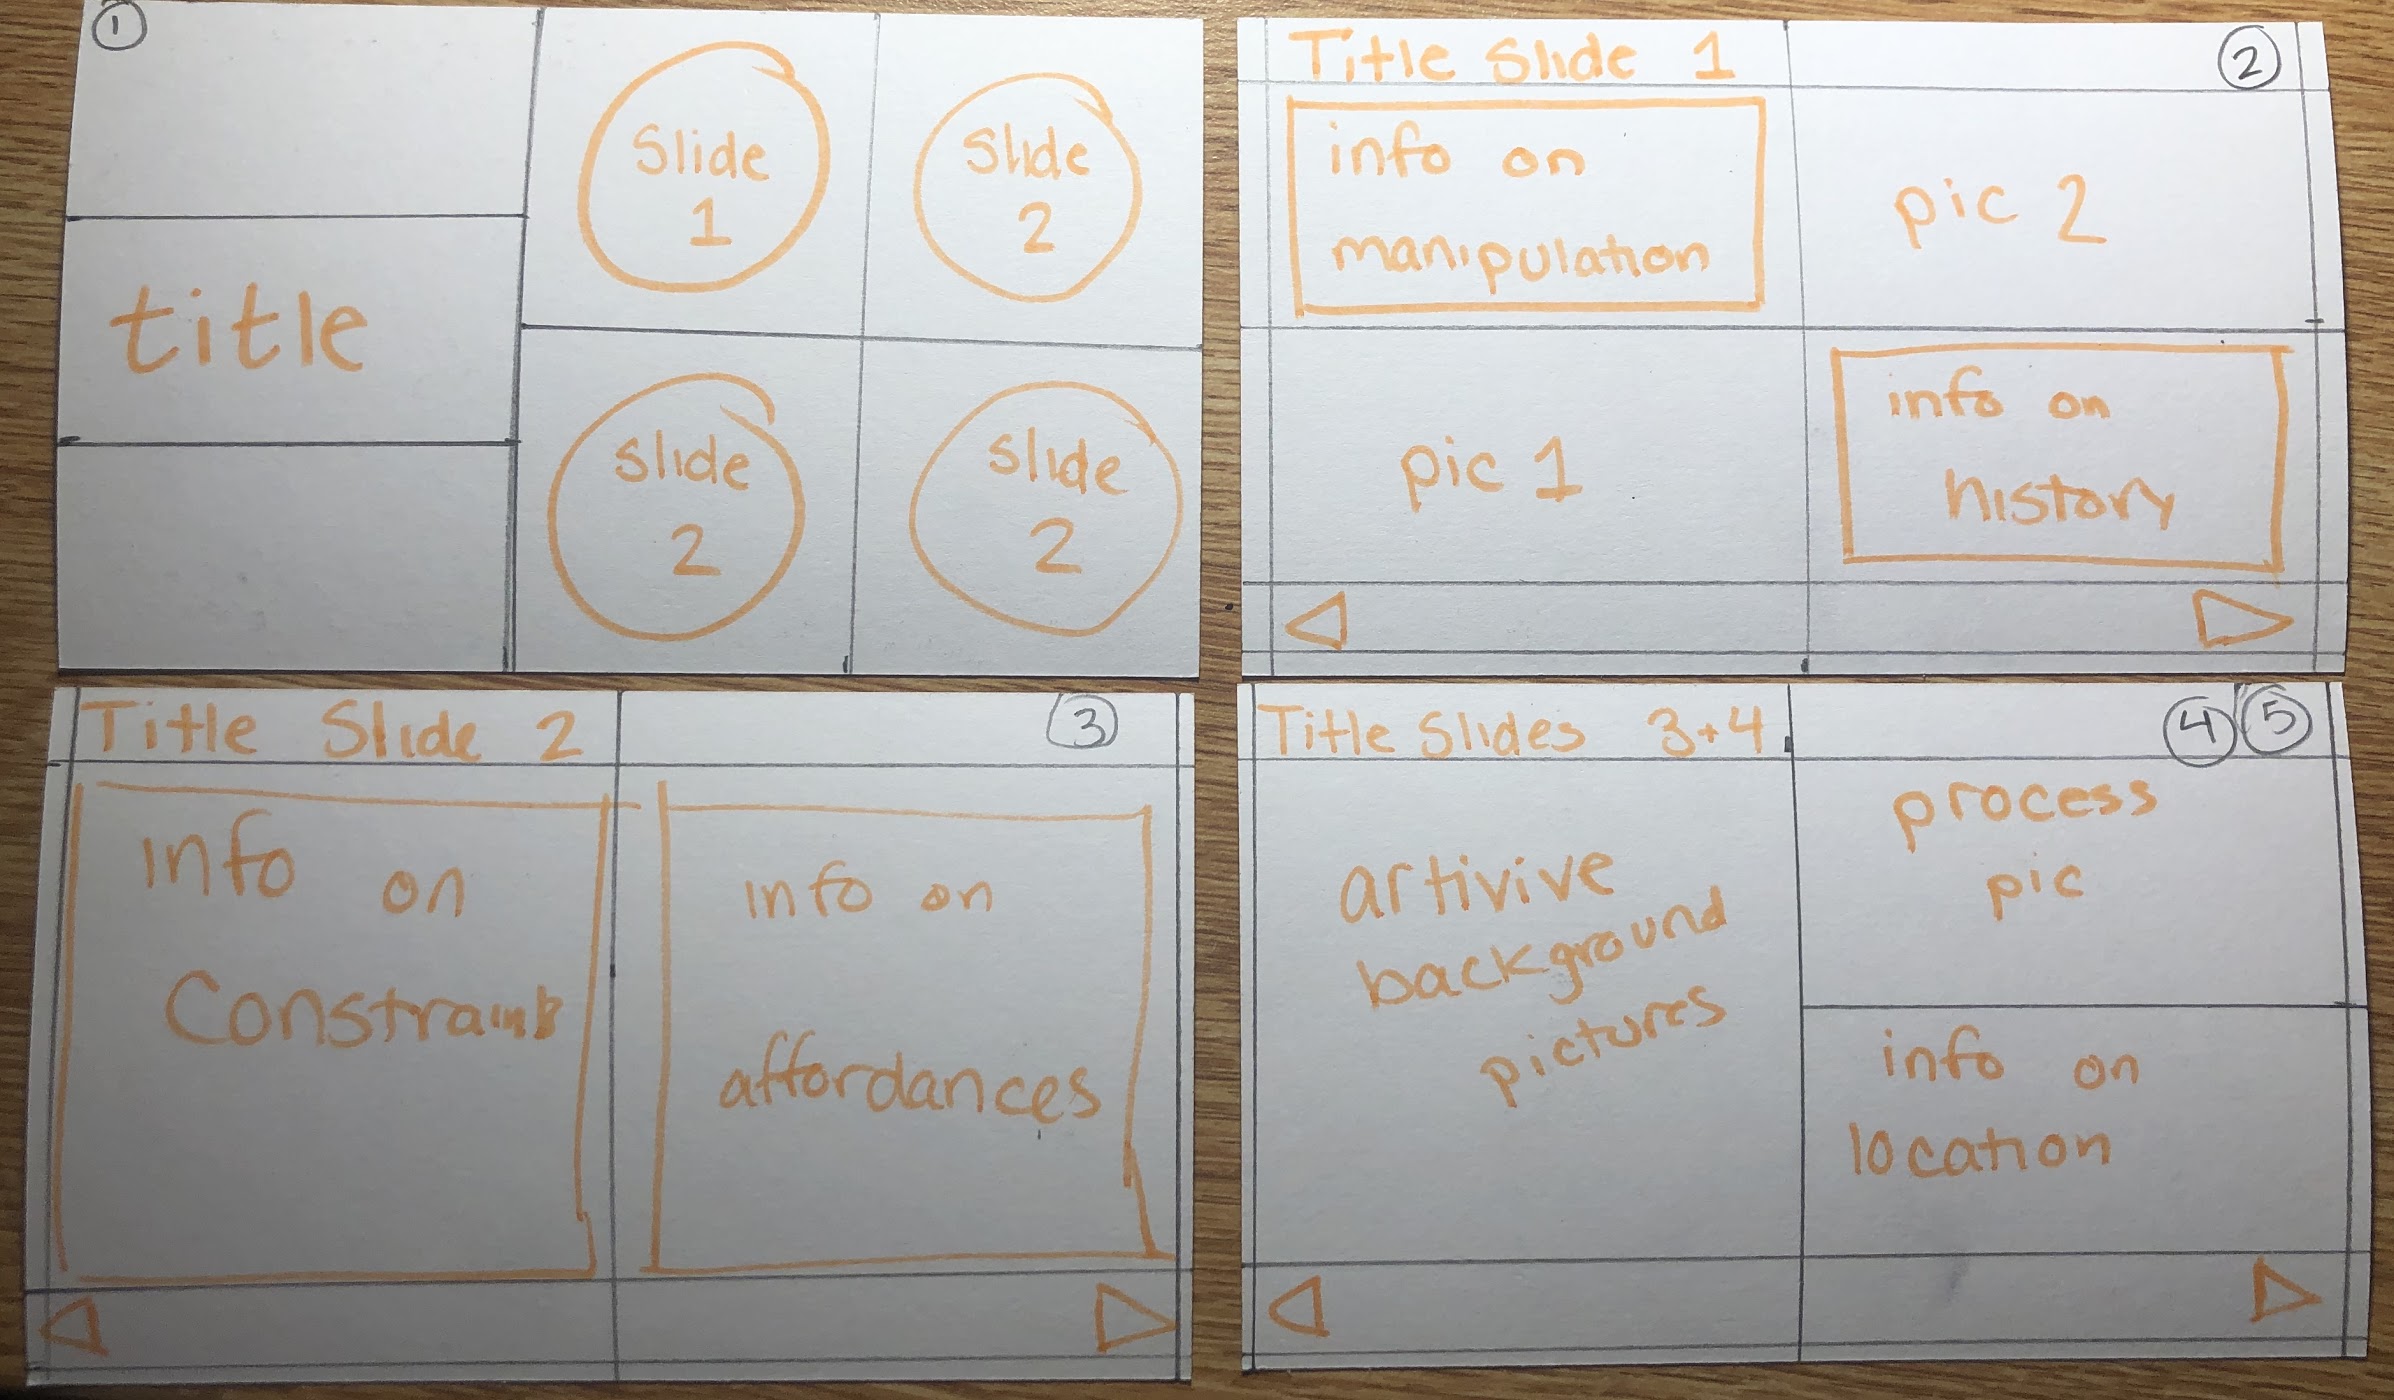 1
title
Slide
1
Slide
2
Slide
2
Slide
2
Title Slide 1
2
info on
manipulation
pic 2
pic 1
info on
history
Title Slide 2
3
info on
Constraints
info on
affordances
Title Slides 3+4
4 5
artivive
background
pictures
process
pic
info on
location